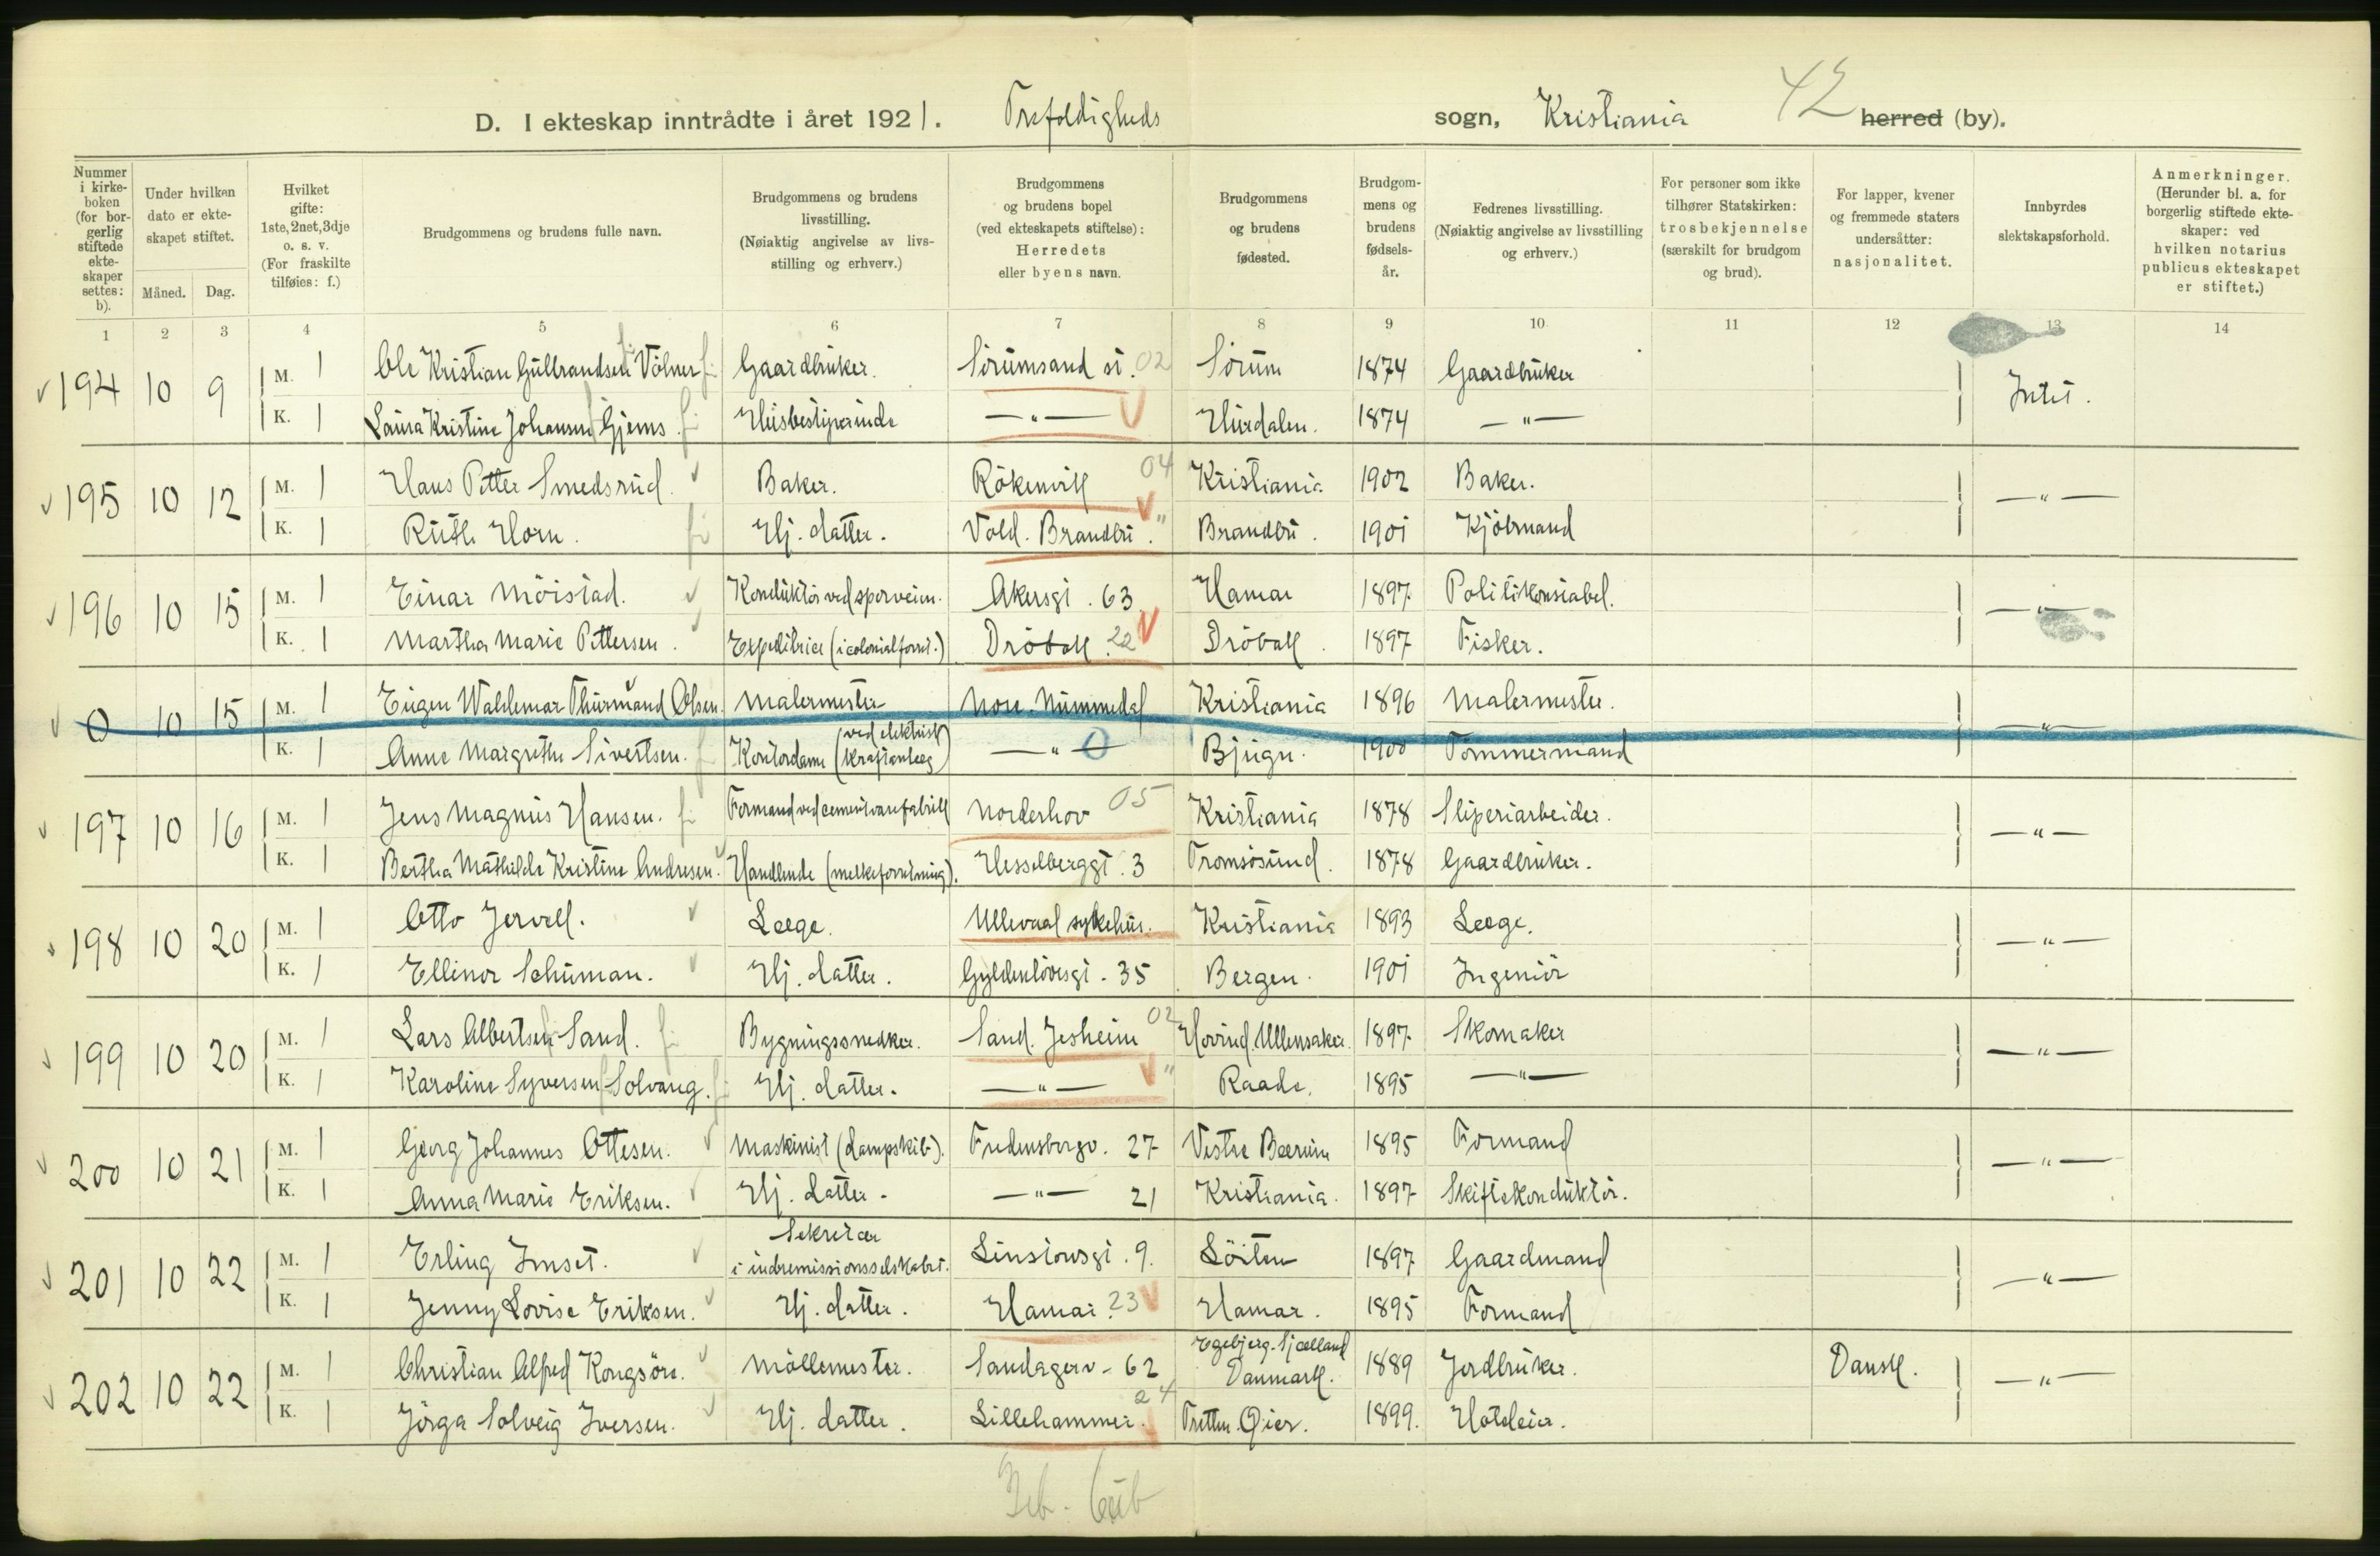 D. I ekteskap inntrådte i året 1921. Trefoldigheds sogn, Kristiania 42 herred (by).
Nummer i kirkeboken (for borgerlig stiftede ekteskaper settes: b).
Under hvilken dato er ekteskapet stiftet.
Måned. Dag.
Hvilket gifte: 1ste, 2net, 3dje o. s. v. (For fraskilte tilføies: f.)
Brudgommens og brudens fulle navn.
Brudgommens og brudens livsstilling. (Nøiaktig angivelse av livsstilling og erhverv.)
Brudgommens og brudens bopel (ved ekteskapets stiftelse): Herredets eller byens navn.
Brudgommens og brudens fødested.
Brudgommens og brudens fødselsår.
Fedrenes livsstilling. (Nøiaktig angivelse av livsstilling og erhverv.)
For personer som ikke tilhører Statskirken: trosbekjennelse (særskilt for brudgom og brud).
For lapper, kvener og fremmede staters undersåtter: nasjonalitet.
Innbyrdes slektskapsforhold.
Anmerkninger. (Herunder bl. a. for borgerlig stiftede ekteskaper: ved hvilken notarius publicus ekteskapet er stiftet.)
1 2 3 4 5 6 7 8 9 10 11 12 13 14
194 10 9 M. 1 Ole Kristian Gulbrandsen Völner Gaardbruker. Sörumsand st. 02 Sörum 1874 Gaardbruker Intet.
K. 1 Laura Kristine Johansen Gjems. Husbestyrerinde —"— Hurdalen. 1874 —"—
195 10 12 M. 1 Hans Petter Smedsrud. Baker. Rökenvik 04 Kristiania 1902 Baker. —"—
K. 1 Ruth Horn. Hj. datter. Vold. Brandbu. " Brandbu. 1901 Kjöbmand
196 10 15 M. 1 Einar Möistad. Konduktör ved sporveien. Akersgt. 63. Hamar 1897 Politikonstabel. —"—
K. 1 Martha Marie Pettersen. Expeditrice (i colonialforret.) Dröbak. 22 Dröbak. 1897 Fisker.
0 10 15 M. 1 Eugen Waldemar Thurmand Olsen. Malermester Nore. Nummedal Kristiania 1896 Malermester. —"—
K. 1 Anne Margrethe Sivertsen. Kontordame (ved elektrisk kraftanlæg) —"— 0 Bjugn. 1900 Tömmermand
197 10 16 M. 1 Jens Magnus Hansen. Formand ved cementvarefabrik Norderhov 05 Kristiania 1878 Sliperiarbeider. —"—
K. 1 Bertha Mathilde Kristine Andresen. Handlende (melkeforretning). Hesselberggt. 3 Tromsösund. 1878 Gaardbruker.
198 10 20 M. 1 Otto Jervell. Læge. Ullevaal sykehus. Kristiania 1893 Læge. —"—
K. 1 Ellinor Schuman. Hj. datter. Gyldenlövesgt. 35 Bergen. 1901 Ingeniör
199 10 20 M. 1 Lars Albertsen Sand. Bygningssnedker. Sand. Jesheim 02 Hovind. Ullensaker. 1897 Skomaker —"—
K. 1 Karoline Syversen Solvang. Hj. datter. —"— " Raade. 1895 —"—
200 10 21 M. 1 Georg Johannes Ottesen. Maskinist (dampskib). Fredensborgv. 27 Vestre Bærum 1895 Formand —"—
K. 1 Anna Marie Eriksen. Hj. datter. —"— 21 Kristiania. 1897 Skiftekonduktör.
201 10 22 M. 1 Erling Imset. Sekretær i indremissionsselskabet. 9. Löiten 1897 Gaardmand —"—
K. 1 Jenny Lovise Eriksen. Hj. datter. Hamar. 23 Hamar. 1895 Formand
202 10 22 M. 1 Christian Alfred Kongsöre. Möllemester. Sandagerv. 62 Egebjerg. Sjælland Danmark. 1889 Jordbruker. Dansk. —"—
K. 1 Jörga Solveig Iversen. Hj. datter. Lillehammer. 24 Tretten. Öier. 1899. Hoteleier.